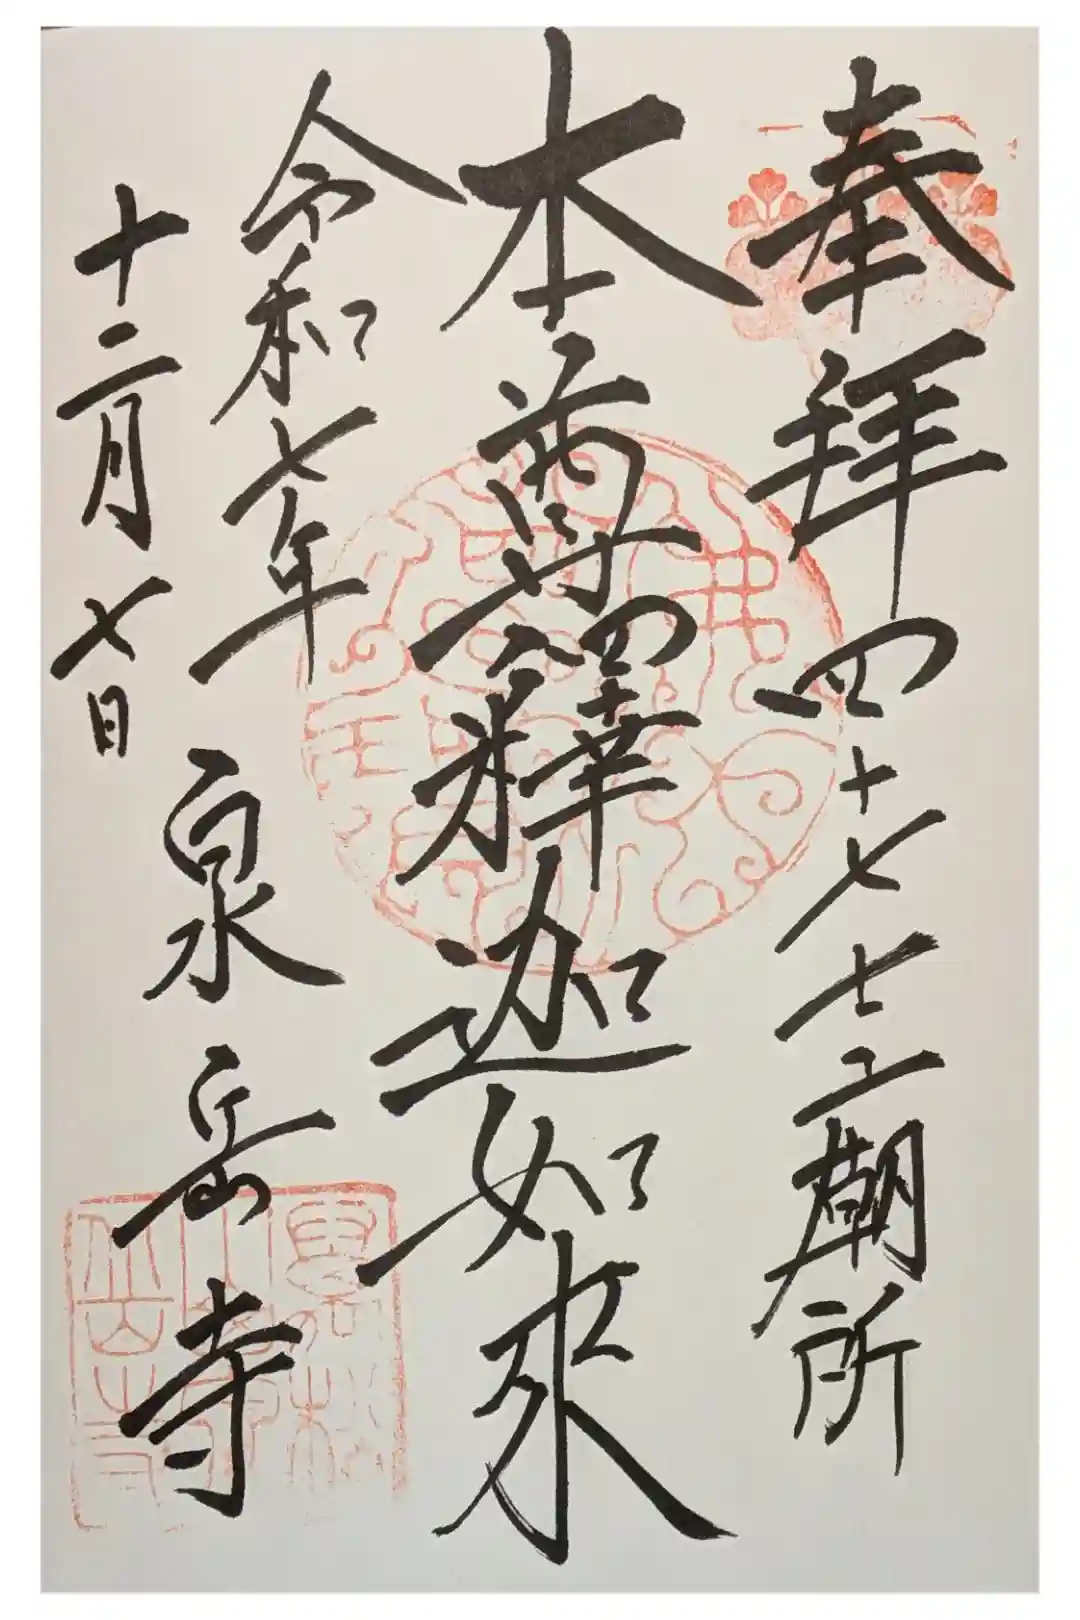 奉拝 四十七士廟所
本尊釋迦如来
令和七年
十二月七日
泉岳寺